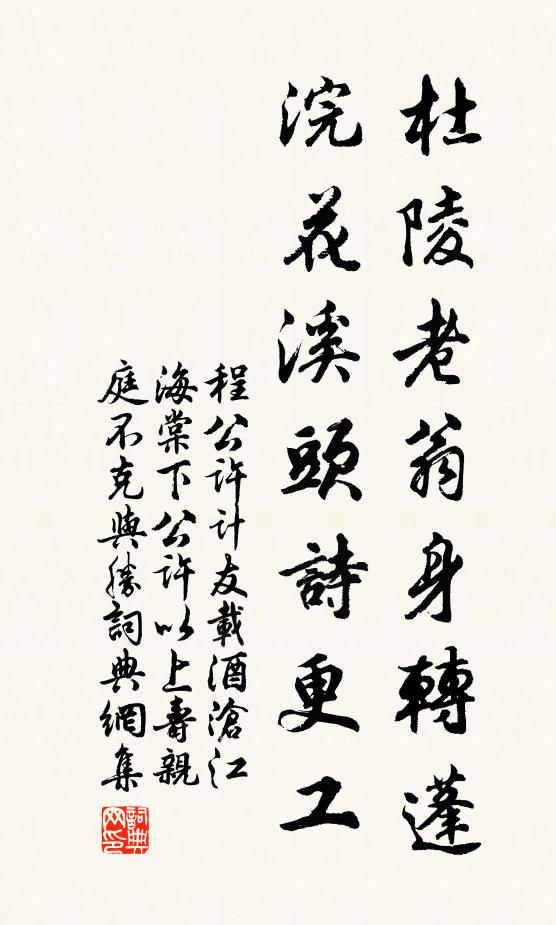 杜陵老翁身轉蓬
浣花溪頭詩更工
程公許計友載酒滄江
海棠下公許以上壽親
庭不克與勝詞典網集
詞典网印